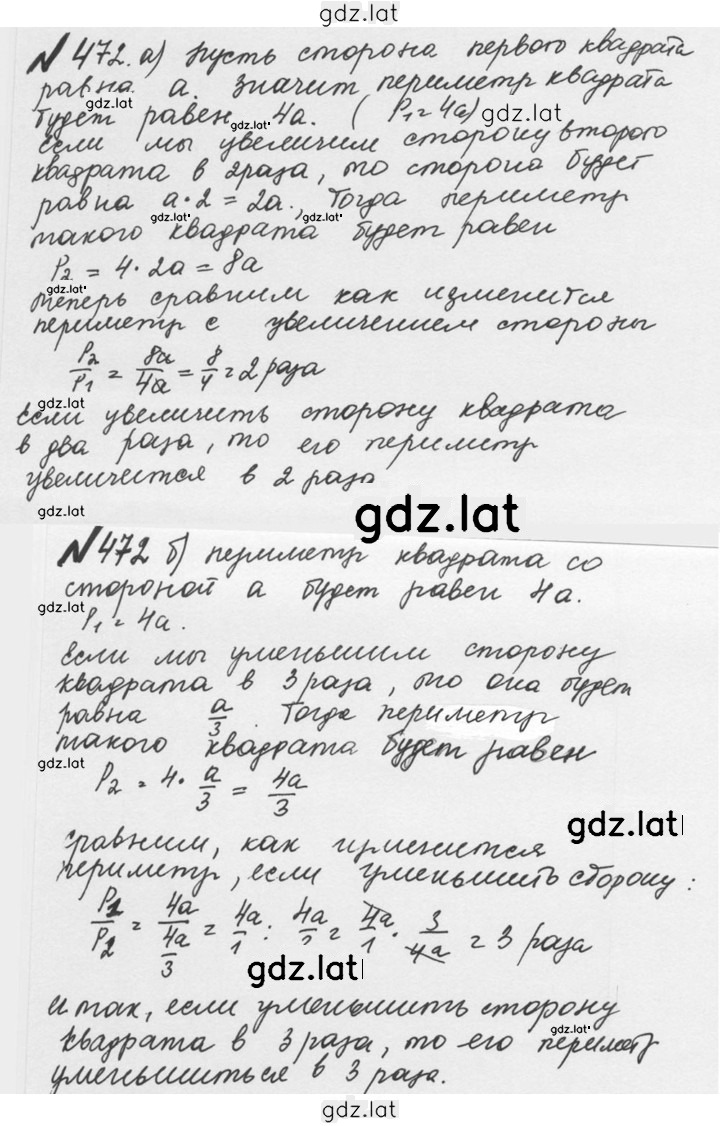 gdz.lat
№ 472. а) пусть сторона первого квадрата
равна a. значит периметр квадрата
gdz.lat
будет равен 4a. (P₁ = 4a) gdz.lat
gdz.lat
если мы увеличим сторону второго
квадрата в 2 раза, то сторона будет
gdz.lat
равна a · 2 = 2a., Тогда периметр
gdz.lat gdz.lat
такого квадрата будет равен
P₂ = 4 · 2a = 8a
gdz.lat
теперь сравним как изменится
периметр с увеличением стороны
P₂/P₁ = 8a/4a = 8/4 = 2 раза
gdz.lat
если увеличить сторону квадрата
в два раза, то его периметр
увеличится в 2 раза
gdz.lat
gdz.lat gdz.lat
№ 472 б) периметр квадрата со
стороной a будет равен 4a.
gdz.lat
P₁ = 4a.
Если мы уменьшим сторону
gdz.lat
квадрата в 3 раза, то она будет
равна a/3. Тогда периметр
такого квадрата будет равен
gdz.lat
P₂ = 4 · a/3 = 4a/3
gdz.lat
сравним, как изменится
периметр, если уменьшить сторону:
P₁/P₂ = 4a/(4a/3) = 4a/1 : 4a/ = 4a/1 · 3/4a = 3 раза
gdz.lat
итак, если уменьшить сторону
gdz.lat
квадрата в 3 раза, то его периметр
уменьшиться в 3 раза.
gdz.lat
gdz.lat